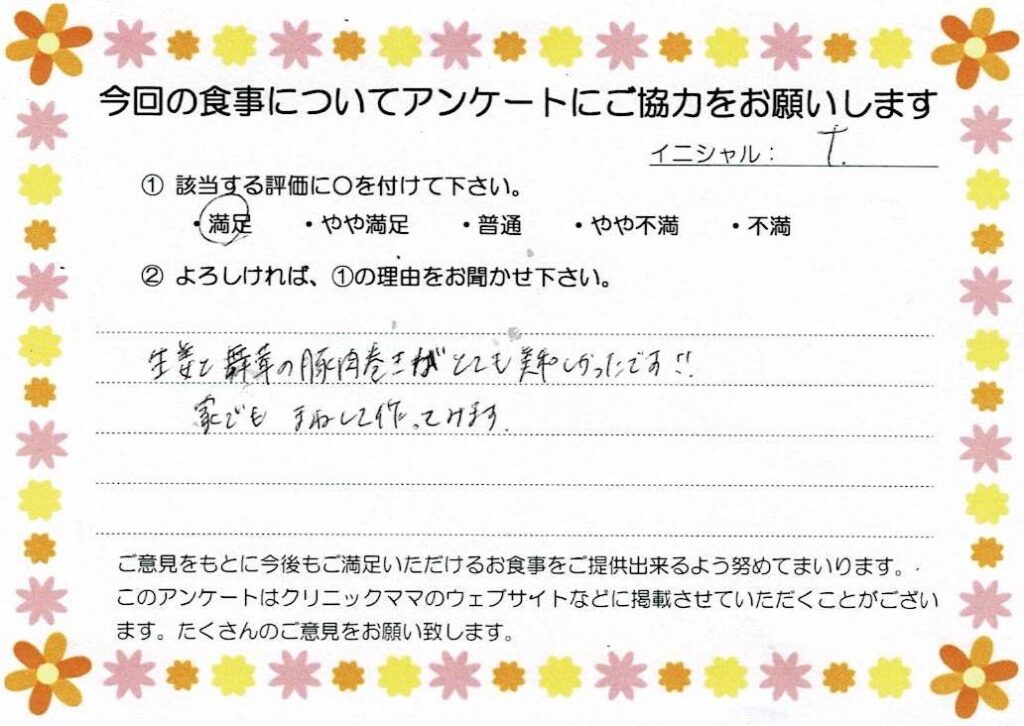 今回の食事についてアンケートにご協力をお願いします
イニシャル： T.
① 該当する評価に〇を付けて下さい。
・満足 ・やや満足 ・普通 ・やや不満 ・不満
② よろしければ、①の理由をお聞かせ下さい。
生姜と舞茸の豚肉巻きがとても美味しかったです!!
家でも まねして作ってみます.
ご意見をもとに今後もご満足いただけるお食事をご提供出来るよう努めてまいります。
このアンケートはクリニックママのウェブサイトなどに掲載させていただくことがござい
ます。たくさんのご意見をお願い致します。